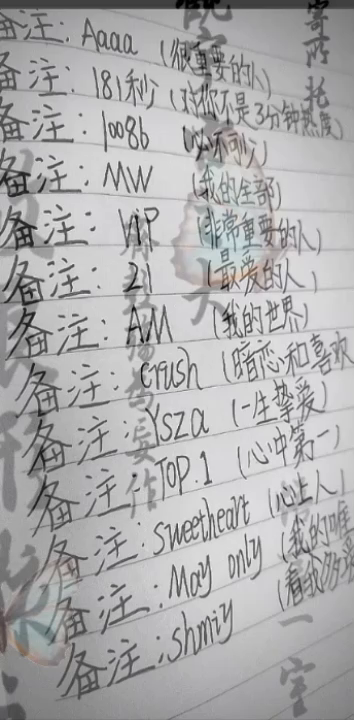 备注: Aaaa (很重要的人)
备注: 181秒 (对你不是3分钟热度)
备注: 10086 (必不可少)
备注: MW (我的全部)
备注: VIP (非常重要的人)
备注: 21 (最爱的人)
备注: AM (我的世界)
备注: crush (暗恋和喜欢
备注: Ysza (一生挚爱)
备注: TOP.1 (心中第一)
备注: sweetheart (心上人)
备注: May only (我的唯
备注: shmiy (看我多爱
寄所托